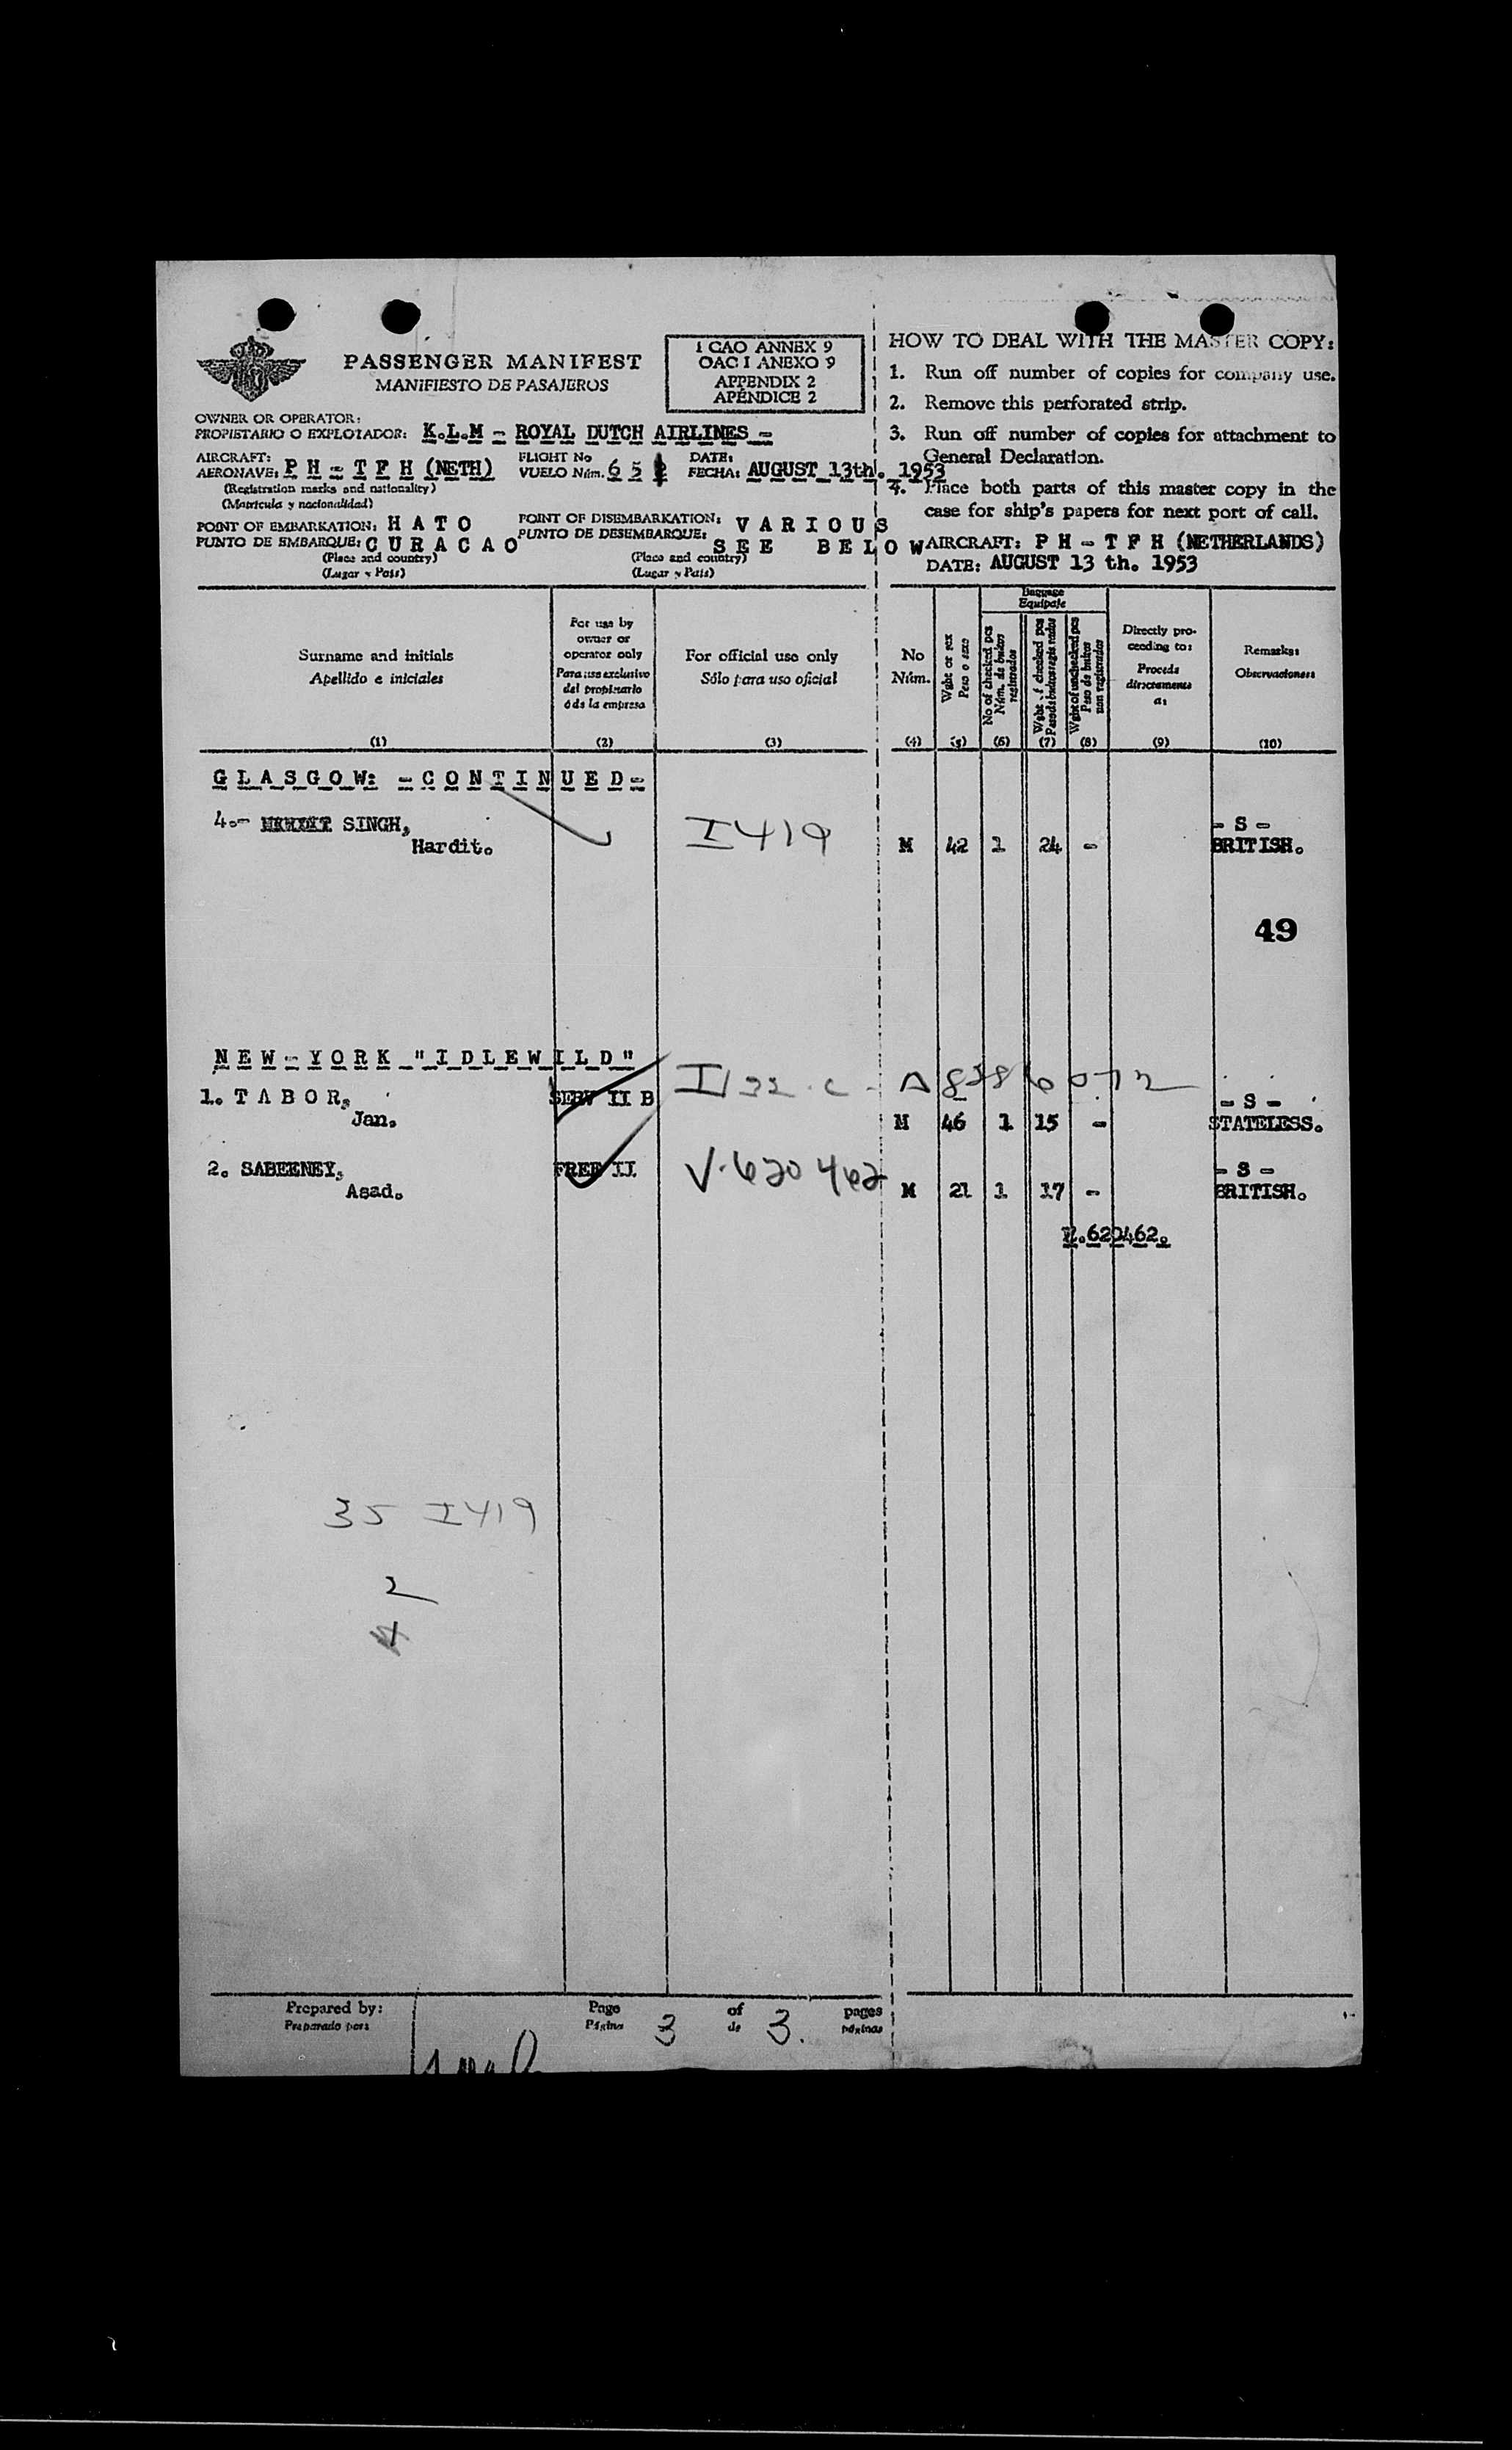 PASSENGER MANIFEST
MANIFIESTO DE PASAJEROS
I CAO ANNEX 9
OAC I ANEXO 9
APPENDIX 2
APÉNDICE 2
OWNER OR OPERATOR:
PROPIETARIO O EXPLOTADOR: K.L.M - ROYAL DUTCH AIRLINES -
AIRCRAFT:
AERONAVE: P H - T F H (NETH)
(Registration marks and nationality)
(Matrícula y nacionalidad)
FLIGHT No
VUELO Núm. 6 5
DATE:
FECHA: AUGUST 13th. 1953
POINT OF EMBARKATION: H A T O
PUNTO DE EMBARQUE: C U R A C A O
(Place and country)
(Lugar y País)
POINT OF DISEMBARKATION: V A R I O U S
PUNTO DE DESEMBARQUE: S E E B E L O W
(Place and country)
(Lugar y País)
HOW TO DEAL WITH THE MASTER COPY:
1. Run off number of copies for company use.
2. Remove this perforated strip.
3. Run off number of copies for attachment to
General Declaration.
4. Place both parts of this master copy in the
case for ship's papers for next port of call.
AIRCRAFT: P H - T F H (NETHERLANDS)
DATE: AUGUST 13 th. 1953
Surname and initials
Apellido e iniciales
(1)
For use by
owner or
operator only
Para uso exclusivo
del propietario
ó de la empresa
(2)
For official use only
Sólo para uso oficial
(3)
No
Núm.
(4)
Wght or sex
Peso o sexo
(5)
Baggage
Equipaje
No of checked pcs
Núm. de bultos
registrados
(6)
Wght of checked pcs
Peso de bultos registrados
(7)
Wght of unchecked pcs
Peso de bultos
non registrados
(8)
Directly pro-
ceeding to:
Procede
directamente
a:
(9)
Remarks:
Observaciones
(10)
G L A S G O W: - C O N T I N U E D -
4.- SINGH, I419 - S -
Hardit. M 42 1 24 - BRITISH.
49
N E W - Y O R K "I D L E W I L D"
1. T A B O R, SERV II B - S -
Jan. M 46 1 15 - STATELESS.
2. SABEENEY, FREE II V.620462 - S -
Asad. M 21 1 17 - BRITISH.
V.620462.
35 I419
2
4
Prepared by:
Preparado por:
Page 3 of 3. pages
Página de páginas